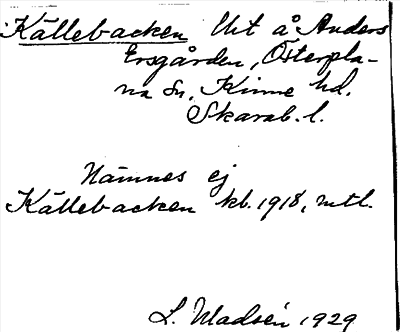 Källebacken Utt å Anders
Ersgården, Österpla-
na sn, Kinne hd.
Skarab. l.
Nämnes ej
Källebacken kb. 1918, mtl.
L. Madsén 1929